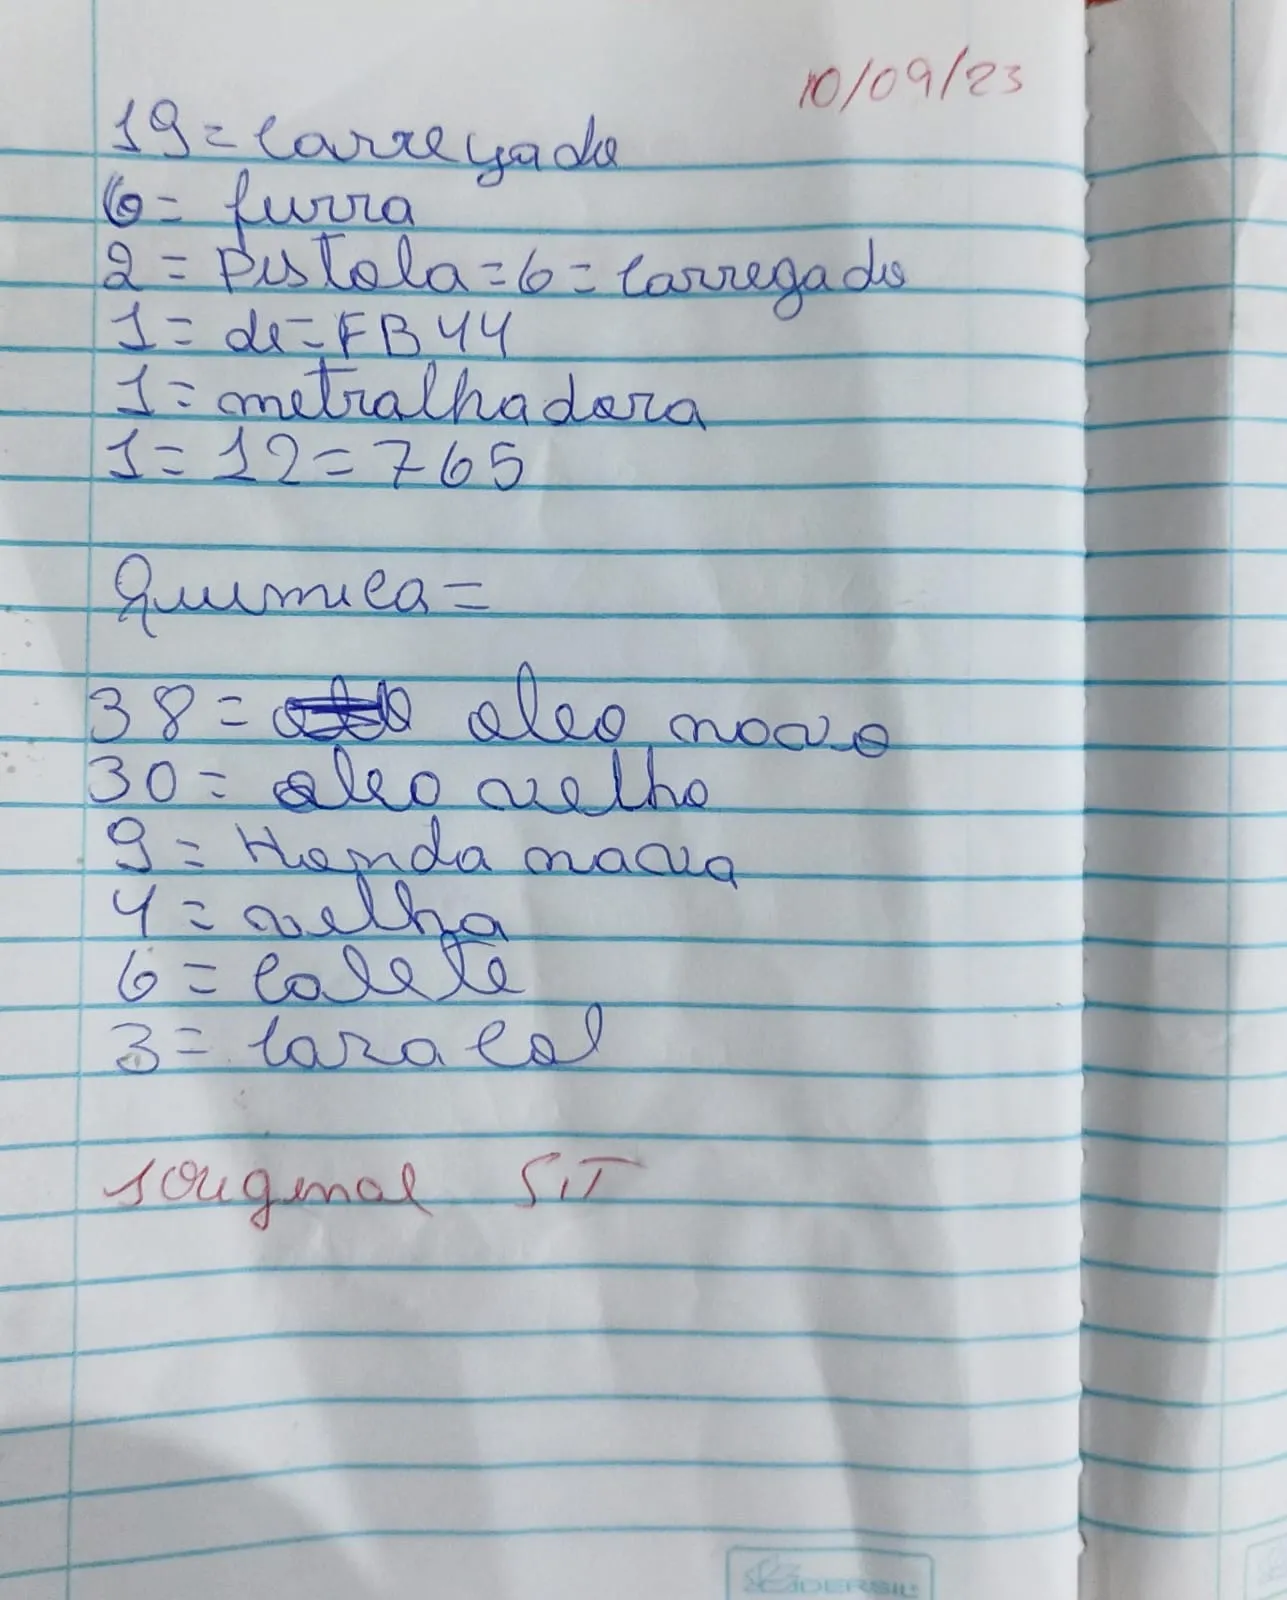 10/09/23
19=carregado
6= furra
2=Pistola=6=carregado
1= de=FB44
1=metralhadora
1=12=765
Quimica=
38= oleo novo
30= oleo velho
9= Honda nova
4=velha
6=colete
3= caracol
1 Original S.T